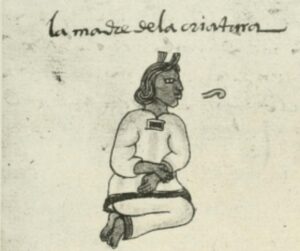 la madre dela criatura